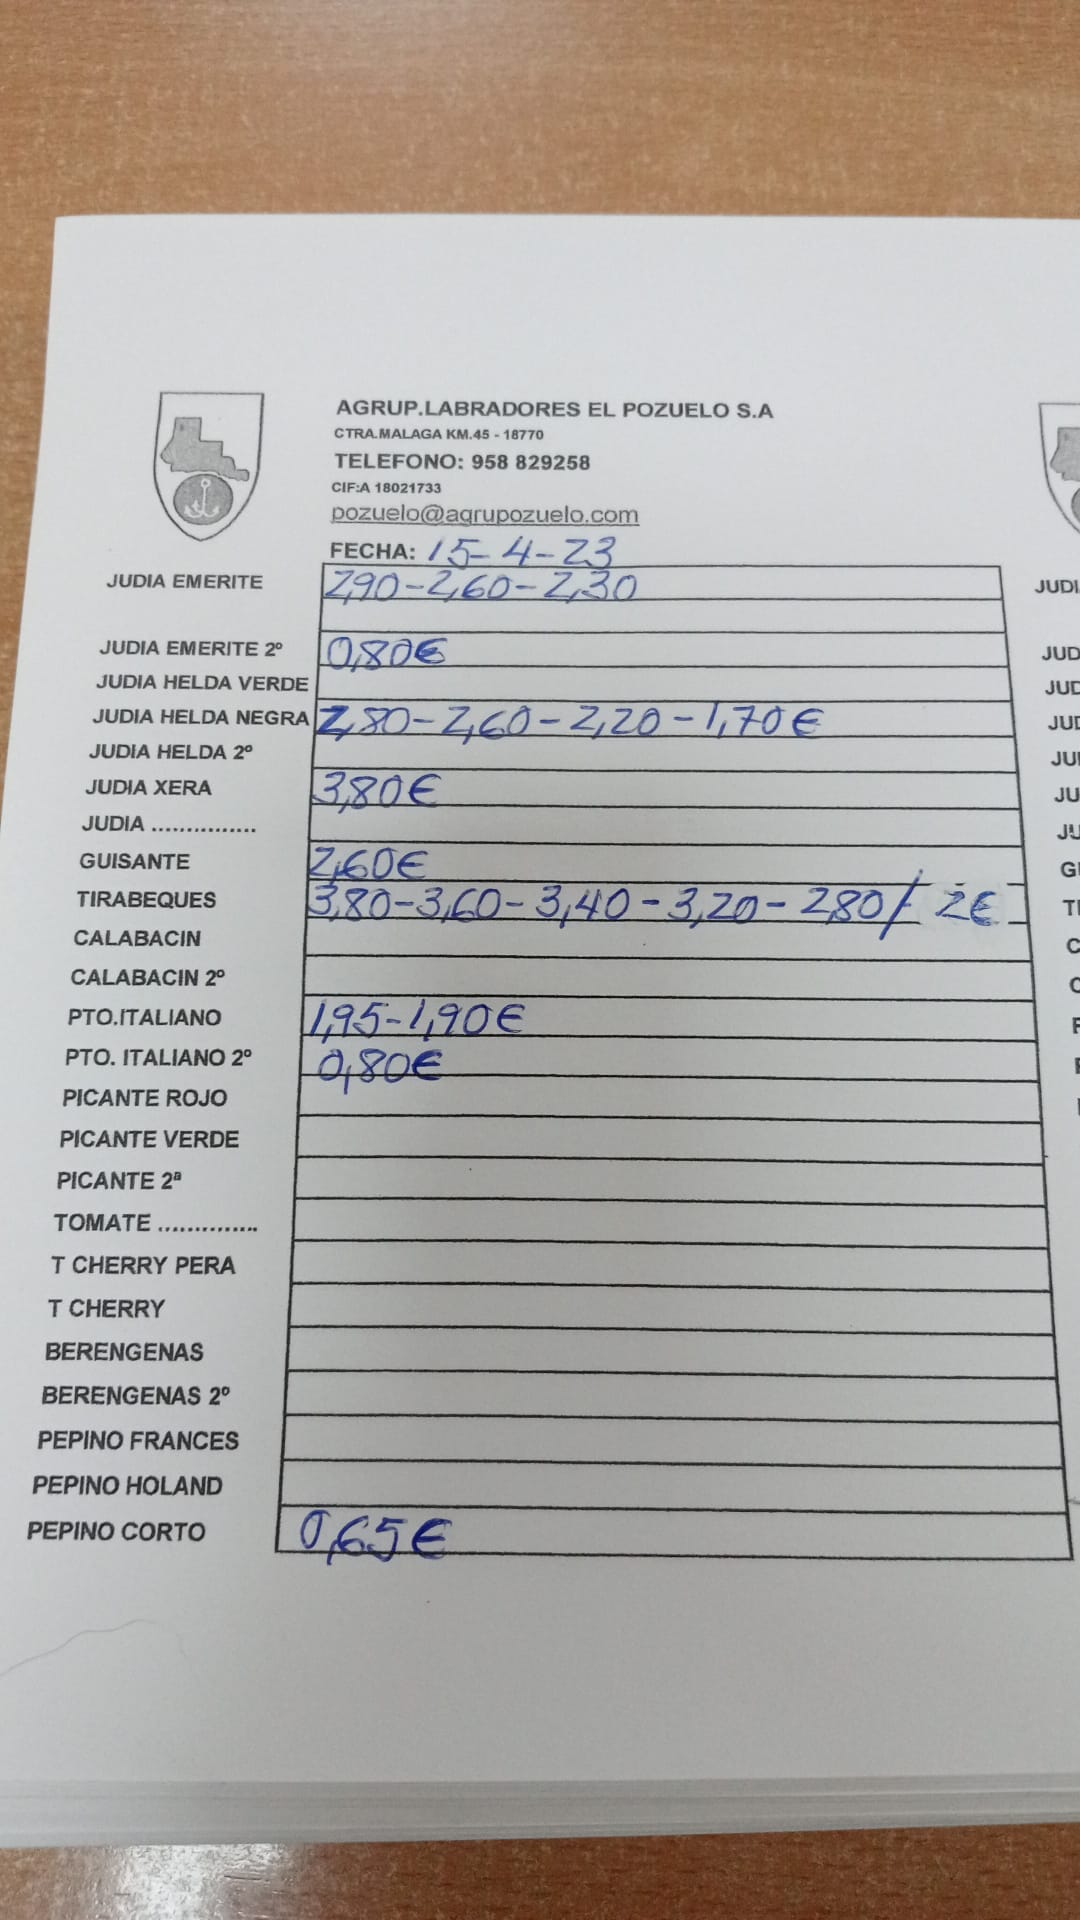 AGRUP.LABRADORES EL POZUELO S.A
CTRA.MALAGA KM.45 - 18770
TELEFONO: 958 829258
CIF:A 18021733
pozuelo@agrupozuelo.com
FECHA: 15-4-23
JUDIA EMERITE 2,90-2,60-2,30
JUDIA EMERITE 2º 0,80€
JUDIA HELDA VERDE
JUDIA HELDA NEGRA 2,80-2,60-2,20-1,70€
JUDIA HELDA 2º
JUDIA XERA 3,80€
JUDIA ...............
GUISANTE 2,60€
TIRABEQUES 3,80-3,60-3,40-3,20-2,80/ 2€
CALABACIN
CALABACIN 2º
PTO.ITALIANO 1,95-1,90€
PTO. ITALIANO 2º 0,80€
PICANTE ROJO
PICANTE VERDE
PICANTE 2ª
TOMATE ..............
T CHERRY PERA
T CHERRY
BERENGENAS
BERENGENAS 2º
PEPINO FRANCES
PEPINO HOLAND
PEPINO CORTO 0,65€